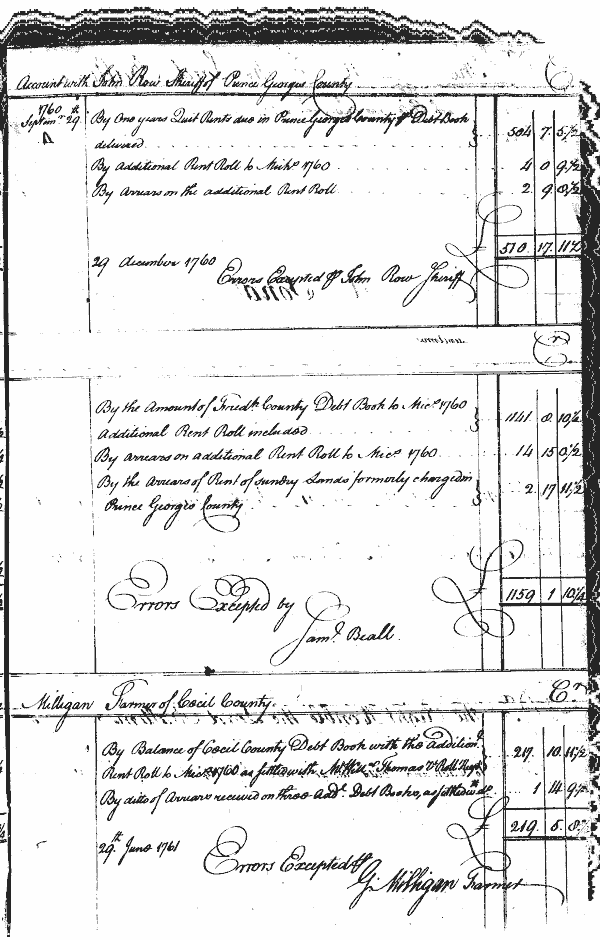 Account with John Row Sheriff of Prince Georges County Cr
1760
Septemr. 29th. By One years Quit Rents due in Prince Georges County Debt Book
delivered 504 7. 5 1/2
By additional Rent Roll to Michs. 1760 4 0 9 1/2
By Arrears on the additional Rent Roll 2 9 8 1/2
£ 510. 17. 11 1/2
29 december 1760
Errors Excepted John Row Sheriff
Cr
By the Amount of Fredk. County Debt Book to Mics. 1760
additional Rent Roll included 1141 8 10 1/2
By arrears on additional Rent Roll to Mics. 1760 14 15 0 1/2
By the Arrears of Rent of sundry Lands formerly charged in
Prince Georges County 2. 17 11 1/2
£ 1159 1 10 1/4
Errors Excepted by
Saml. Beall.
Milligan Farmer of Cæcil County. Cr
By Balance of Cæcil County Debt Book with the addition.l
Rent Roll to Mics. 1760 as settled with Thomas 217. 10. 11 1/2
By ditto of Arrears received on three Addl. Debt Books, as settled 1 14 9 1/2
£ 219. 5. 8
29th. June 1761
Errors Excepted
G. Milligan Farmer